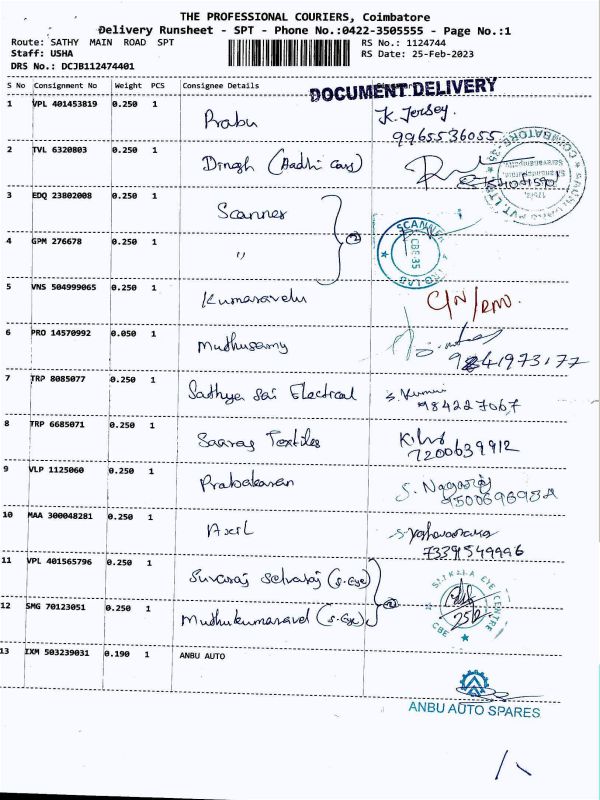 THE PROFESSIONAL COURIERS, Coimbatore
Delivery Runsheet - SPT - Phone No.:0422-3505555 - Page No.:1
Route: SATHY MAIN ROAD SPT RS No.: 1124744
Staff: USHA RS Date: 25-Feb-2023
DRS No.: DCJB112474401
S No Consignment No Weight PCS Consignee Details
DOCUMENT DELIVERY
1 VPL 401453819 0.250 1 Prabu K. Jersey.
9965536055
2 TVL 6320803 0.250 1 Dinesh (Aadhi Cars)
3 EDQ 23802008 0.250 1 Scanner
4 GPM 276678 0.250 1 " 2
SCANNER
CBE-35
5 VNS 504999065 0.250 1 Kumaravelu C/N/RMO.
6 PRO 14570992 0.050 1 Muthusamy
9841973177
7 TRP 8085077 0.250 1 Sathya Sai Electrical S. Kumar
984227067
8 TRP 6685071 0.250 1 Saarag Textiles
7200639912
9 VLP 1125060 0.250 1 Prabakaran S. Nagaraj
9500696982
10 MAA 300048281 0.250 1 Axil
7339549996
11 VPL 401565796 0.250 1 Suvaraj Selvaraj (S.Eye)
12 SMG 70123051 0.250 1 Muthukumaravel (S.Eye) 2
EYE CENTRE
CBE
25/2
13 IXM 503239031 0.190 1 ANBU AUTO
ANBU AUTO SPARES